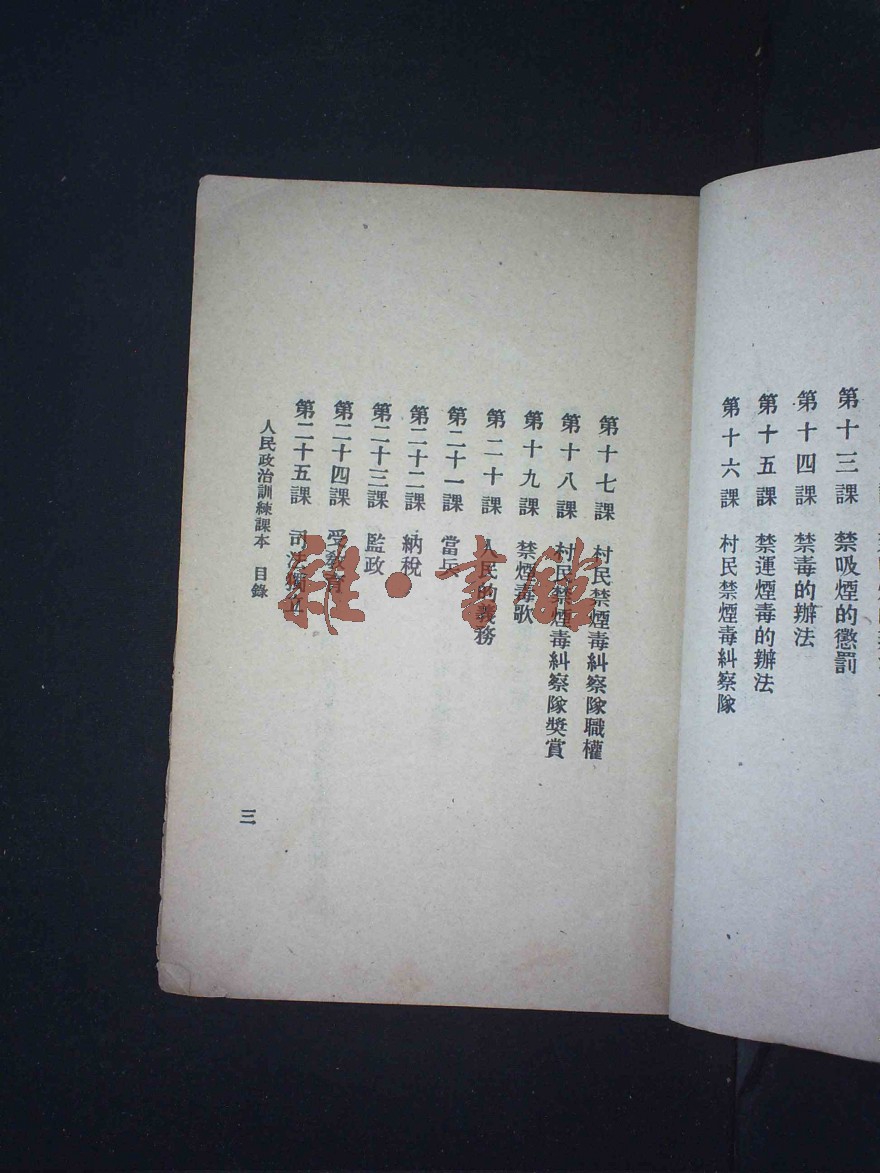 第十三課　禁吸煙的懲罰
第十四課　禁毒的辦法
第十五課　禁運煙毒的辦法
第十六課　村民禁煙毒糾察隊
第十七課　村民禁煙毒糾察隊職權
第十八課　村民禁煙毒糾察隊獎賞
第十九課　禁煙毒歌
第二十課　人民的義務
第二十一課　當兵
第二十二課　納稅
第二十三課　監政
第二十四課　受教育
第二十五課　司法獨立
人民政治訓練課本　目錄
三
雜·書館